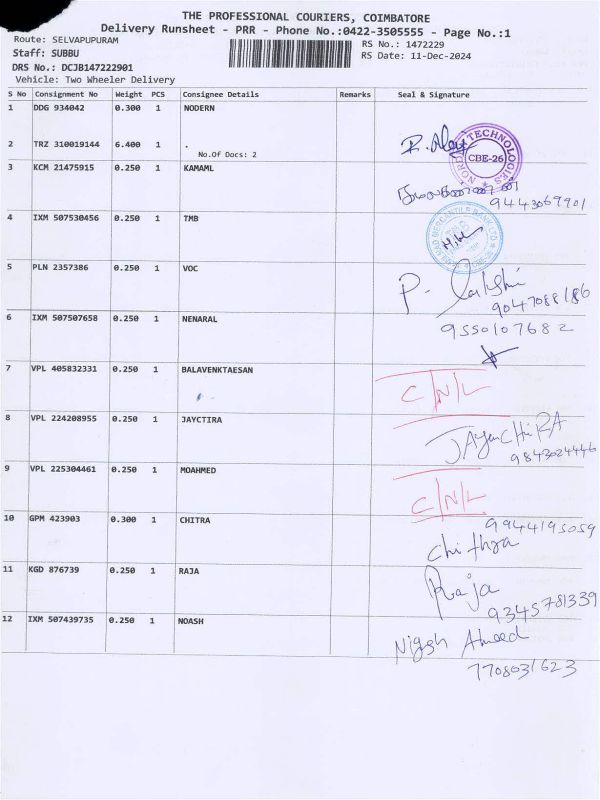 THE PROFESSIONAL COURIERS, COIMBATORE
Delivery Runsheet - PRR - Phone No.:0422-3505555 - Page No.:1
Route: SELVAPUPURAM
RS No.: 1472229
Staff: SUBBU
RS Date: 11-Dec-2024
DRS No.: DCJB147222901
Vehicle: Two Wheeler Delivery
S No Consignment No Weight PCS Consignee Details Remarks Seal & Signature
1 DDG 934042 0.300 1 NODERN
2 TRZ 310019144 6.400 1 .
No.Of Docs: 2
NORDEN TECHNOLOGIES
CBE-26
3 KCM 21475915 0.250 1 KAMAML
9443069901
4 IXM 507530456 0.250 1 TMB
TAMILNAD MERCANTILE BANK LTD
5 PLN 2357386 0.250 1 VOC
P. Lakshmi
9047088186
6 IXM 507507658 0.250 1 NENARAL
9550107682
7 VPL 405832331 0.250 1 BALAVENKTAESAN
C/N/L
8 VPL 224208955 0.250 1 JAYCTIRA
JAYanCHiRA
9843024446
9 VPL 225304461 0.250 1 MOAHMED
C/N/L
10 GPM 423903 0.300 1 CHITRA
9944195059
chithra
11 KGD 876739 0.250 1 RAJA
Raja
9345781339
12 IXM 507439735 0.250 1 NOASH
Ahmeed
7708031623